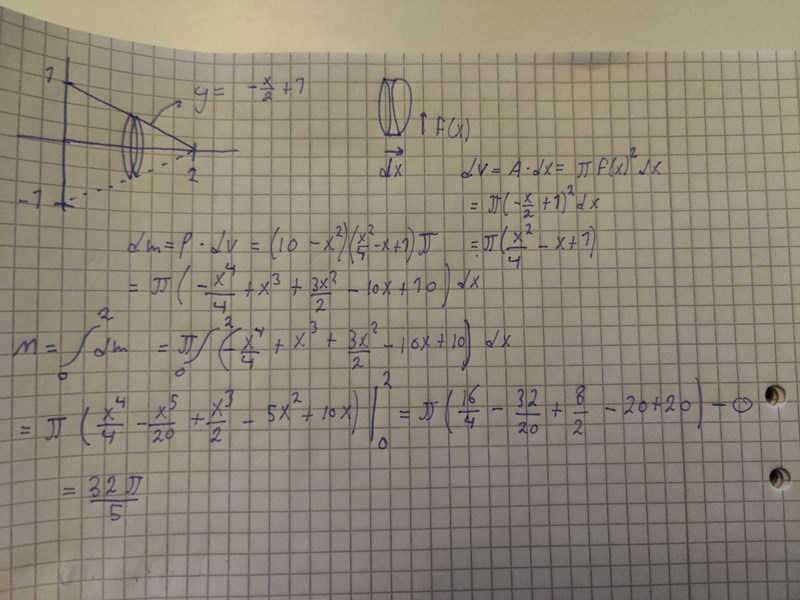 1
y = -x/2 + 1
f(x)
dx
2
-1
dv = A · dx = π f(x)² dx
= π(-x/2 + 1)² dx
= π(x²/4 - x + 1)
dm = ρ · dv = (10 - x²)(x²/4 - x + 1) π
= π(-x⁴/4 + x³ + 3x²/2 - 10x + 10) dx
M = ∫₀² dm = π ∫₀² (-x⁴/4 + x³ + 3x²/2 - 10x + 10) dx
= π (x⁴/4 - x⁵/20 + x³/2 - 5x² + 10x) |₀² = π(16/4 - 32/20 + 8/2 - 20 + 20) - 0
= 32π/5